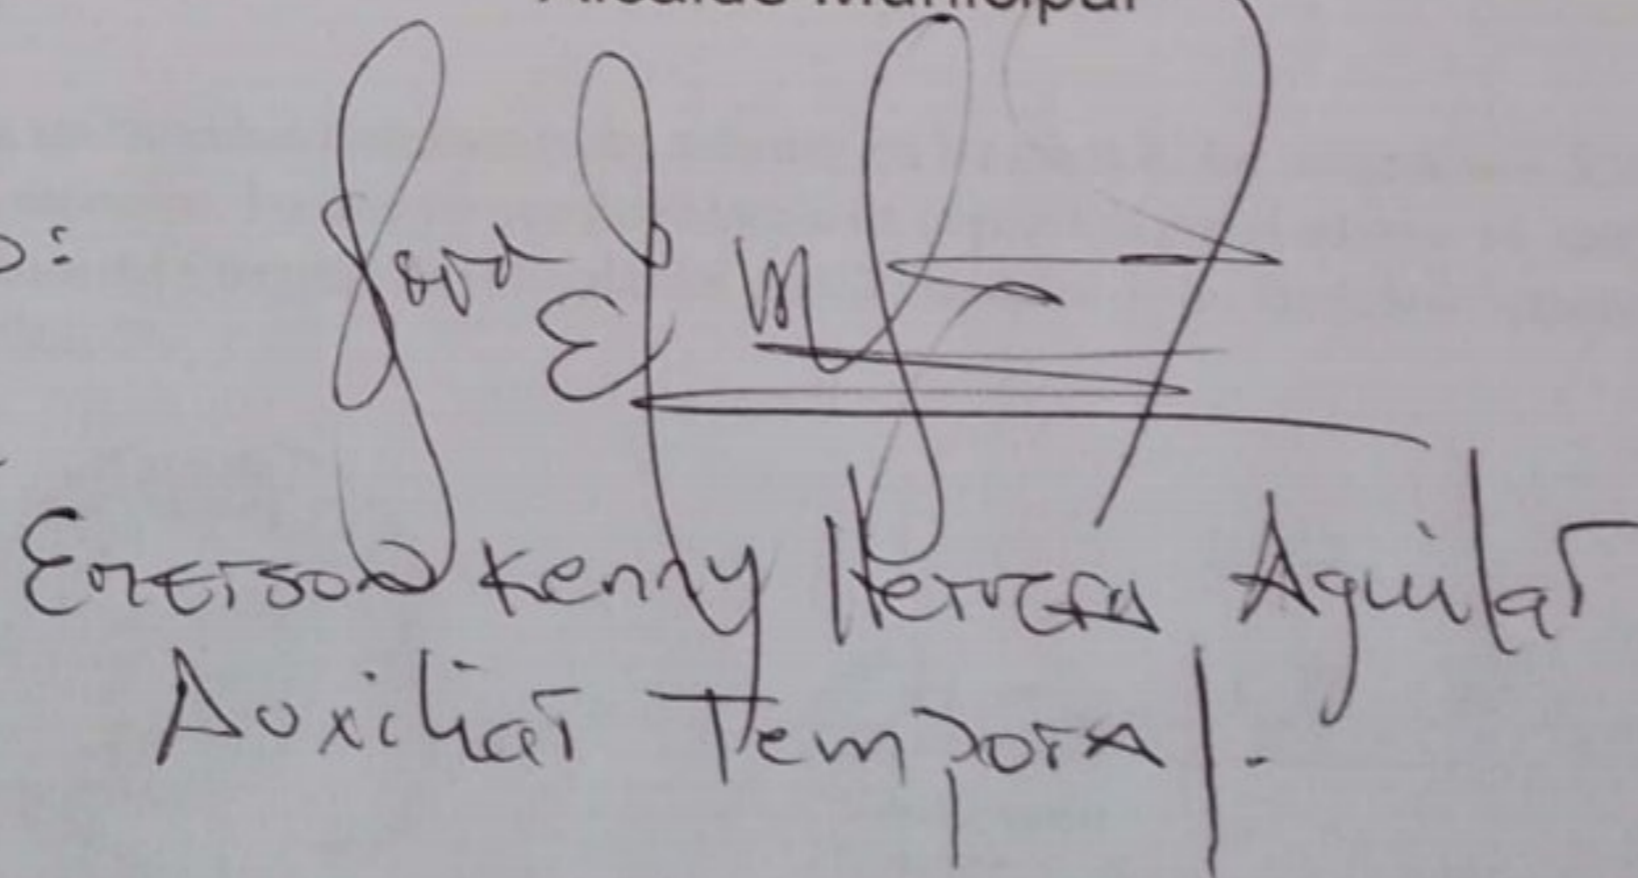 Alcalde Municipal
Emerson Kenny Herrera Aguilar
Auxiliar Temporal.